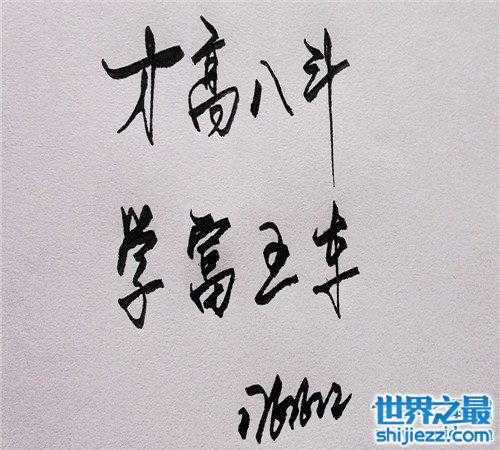 才高八斗
学富五车
世界之最
shijiezzi.com